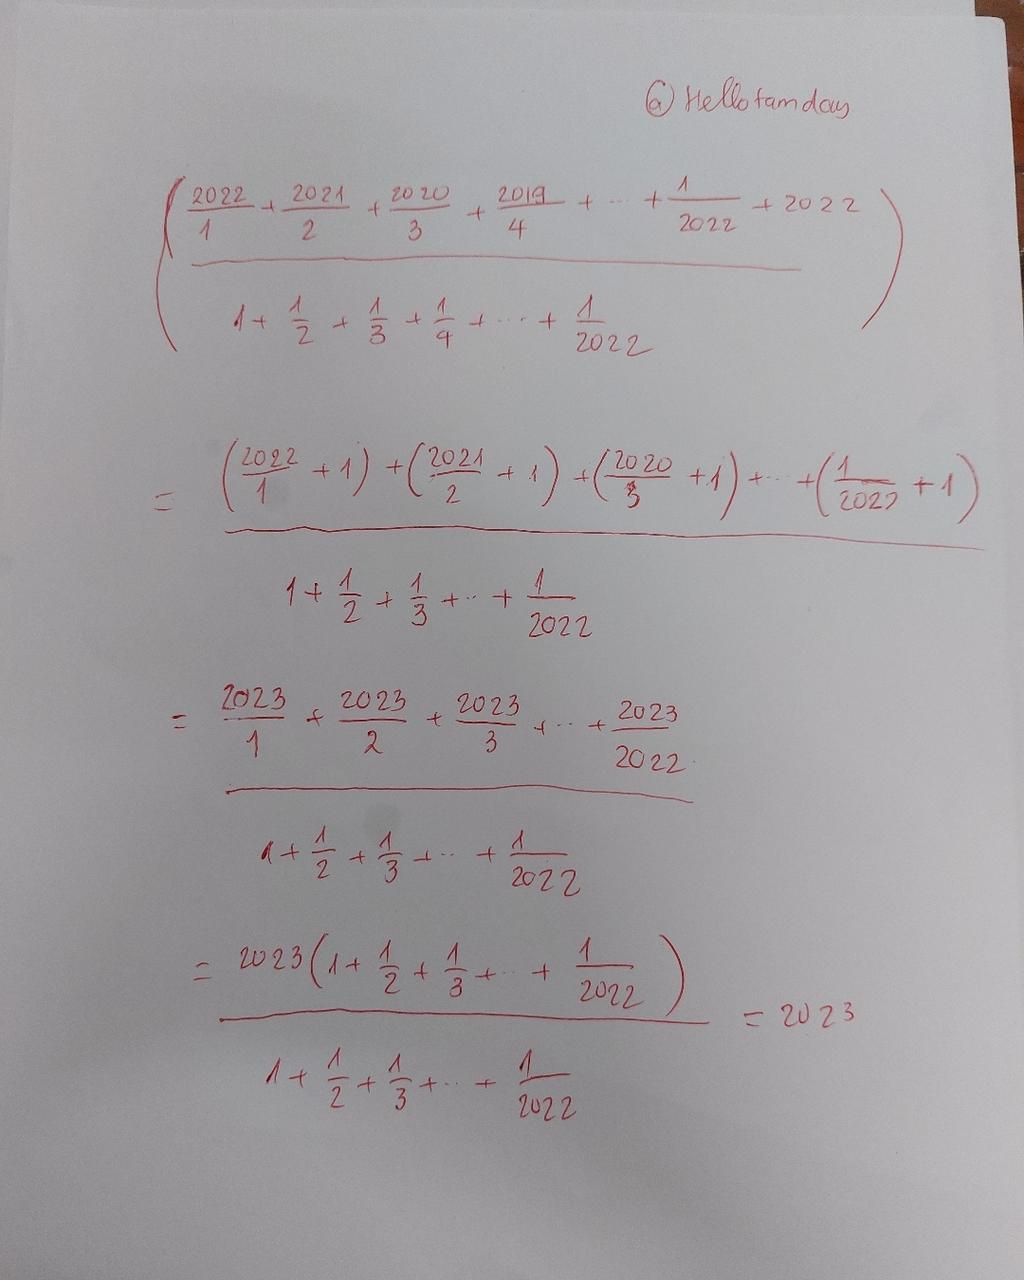 @Hellotamday
(2022/1 + 2021/2 + 2020/3 + 2019/4 + ... + 1/2022 + 2022)
1 + 1/2 + 1/3 + 1/4 + ... + 1/2022
= (2022/1 + 1) + (2021/2 + 1) + (2020/3 + 1) + ... + (1/2022 + 1)
1 + 1/2 + 1/3 + ... + 1/2022
= 2023/1 + 2023/2 + 2023/3 + ... + 2023/2022
1 + 1/2 + 1/3 + ... + 1/2022
= 2023(1 + 1/2 + 1/3 + ... + 1/2022) = 2023
1 + 1/2 + 1/3 + ... + 1/2022